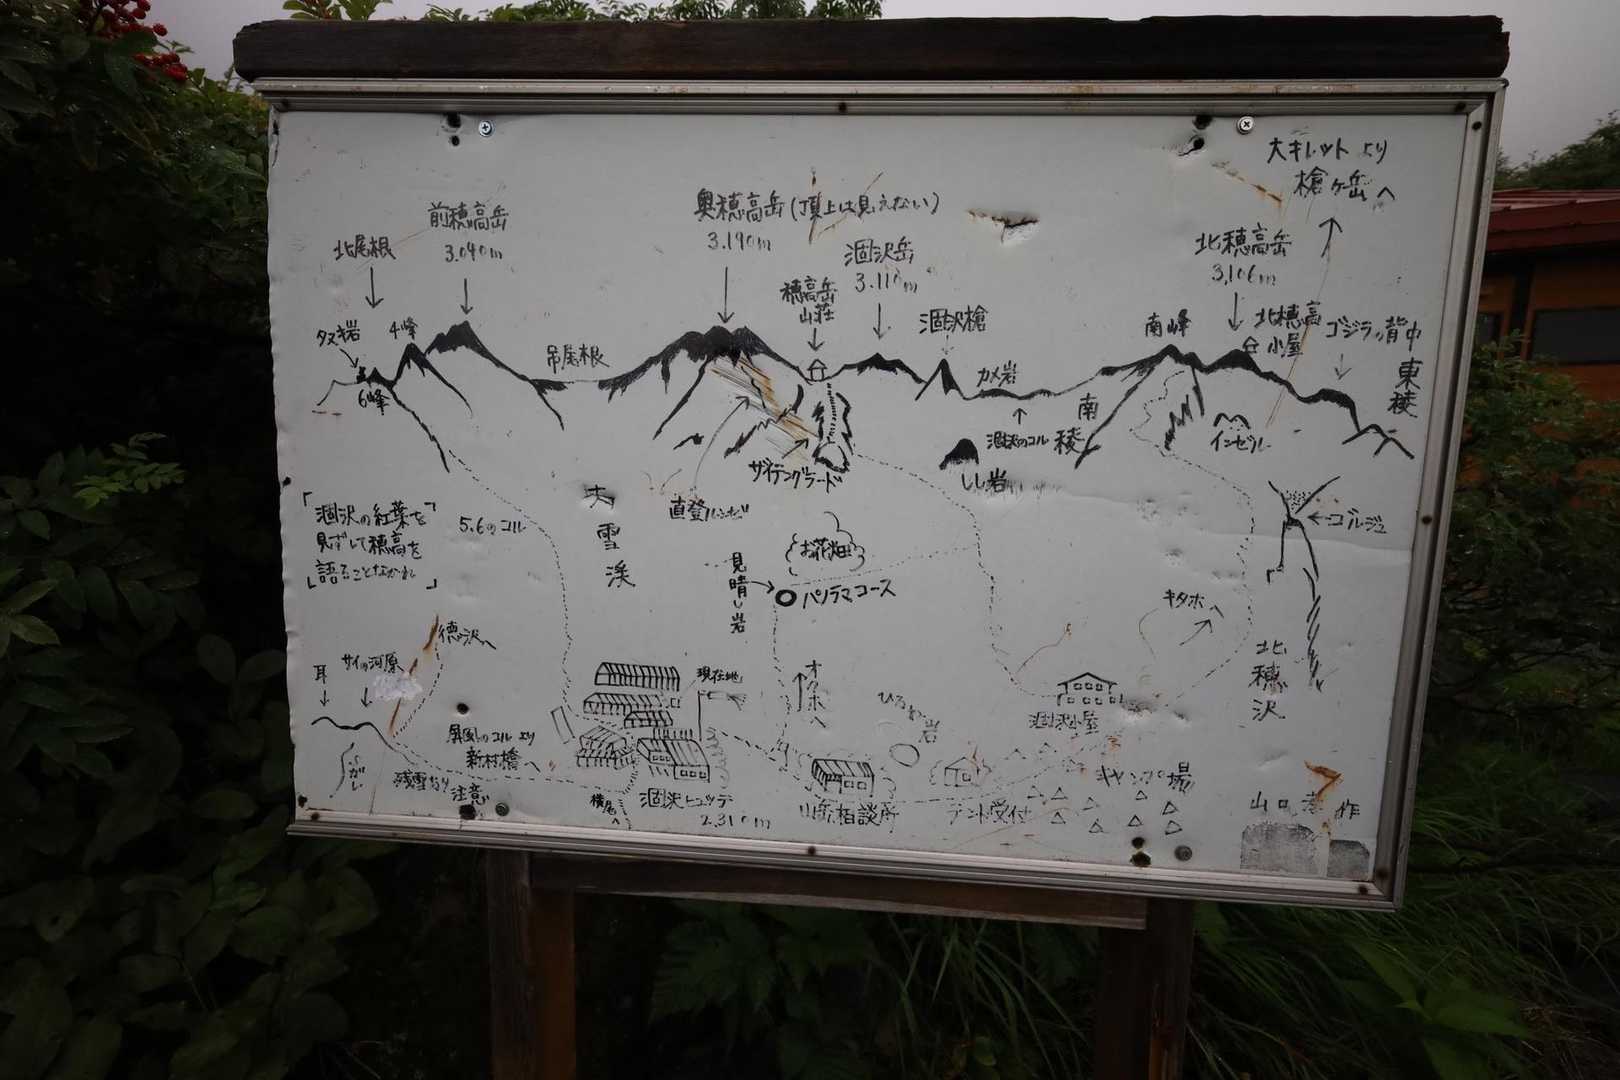 大キレットより
槍ヶ岳へ
奥穂高岳(頂上は見えない)
3.190m
前穂高岳
3.040m
北尾根
涸沢岳
3.110m
北穂高岳
3,106m
穂高岳
山荘
涸沢槍
南峰
北穂高
小屋
ゴジラの背中
東稜
タヌキ岩
4峰
6峰
吊尾根
カメ岩
涸沢のコル
南稜
インゼル
しし岩
ザイテングラード
直登ルンゼ
大雪渓
「涸沢の紅葉を
見ずして穂高を
語ることなかれ」
5.6のコル
お花畑
見晴し岩
パノラマコース
ゴルジュ
キタホへ
北穂沢
徳沢へ
耳
サイの河原
現在地
オクホへ
涸沢小屋
屏風のコルより
新村橋へ
残雪あり
注意
横尾へ
涸沢ヒュッテ
2.310m
山岳相談所
テント受付
キャンプ場
山口 作